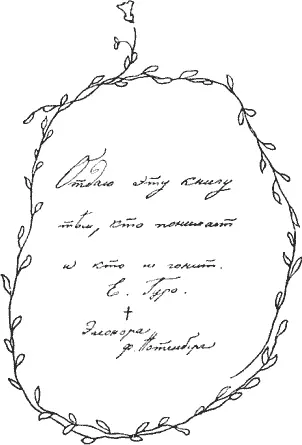 Отдаю эту книгу
тѣм, кто понимает
и кто не гонит.
Е. Гуро.
Элеонора
ф. Нотенберг